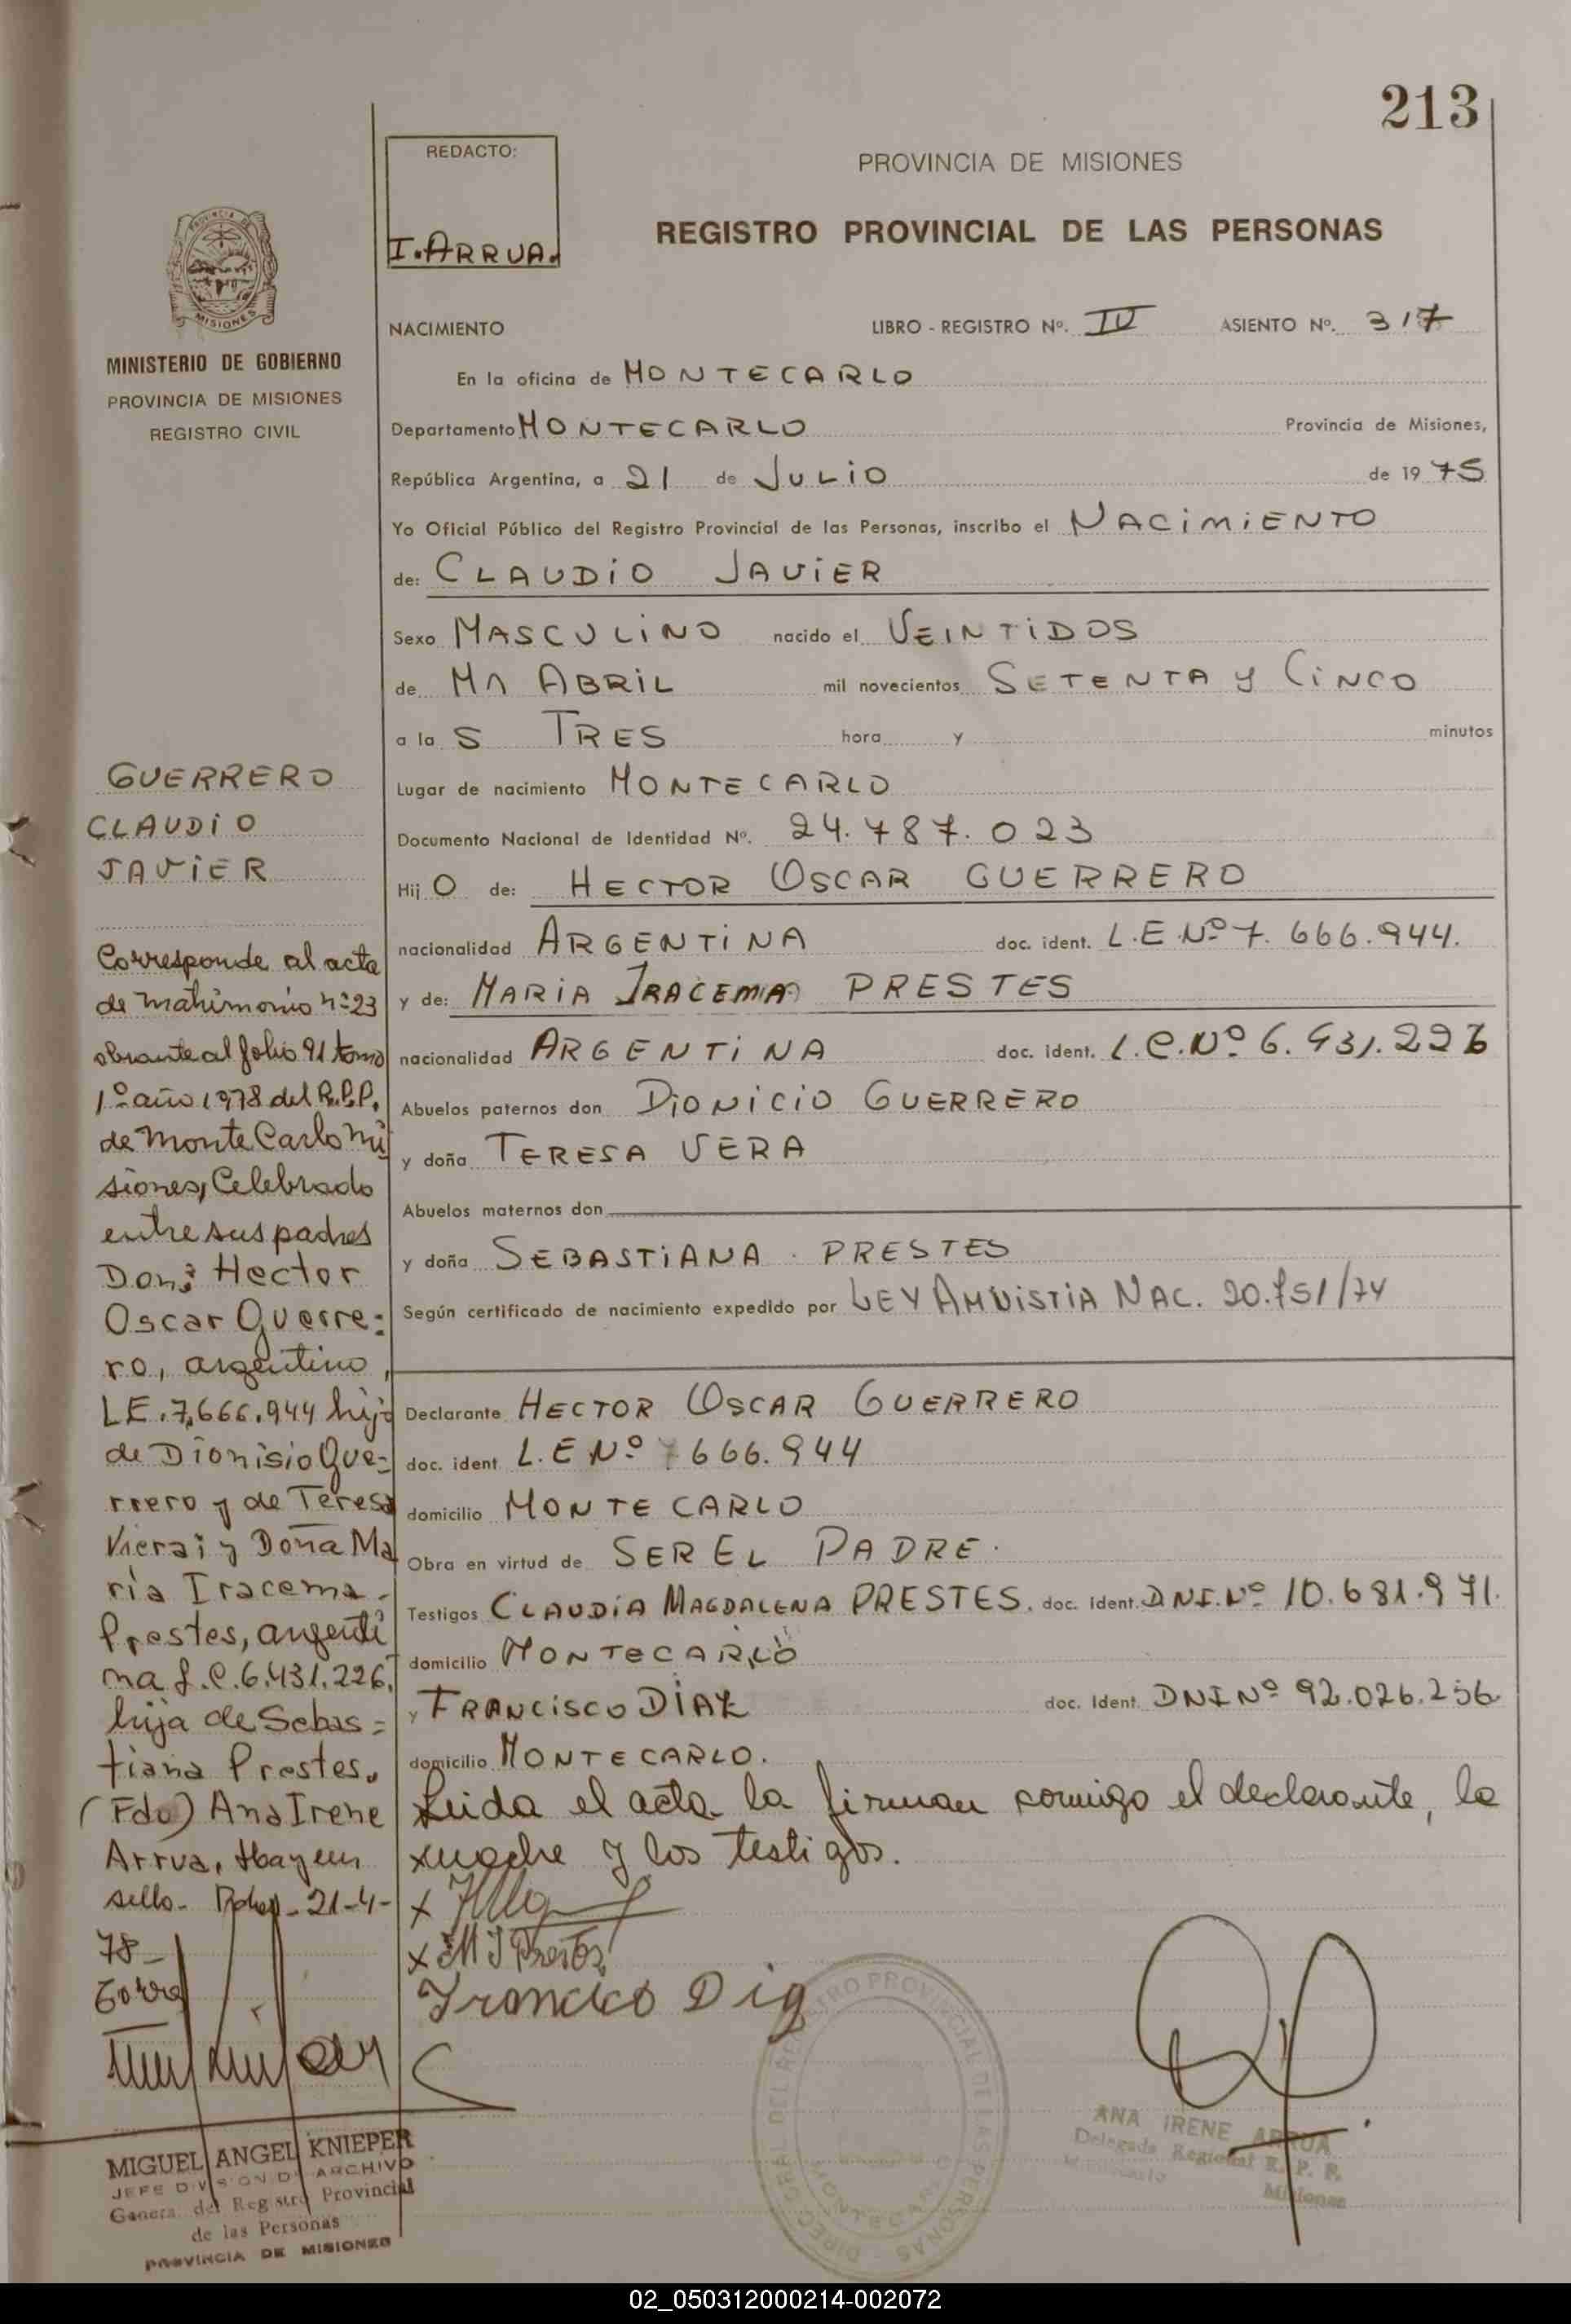 213
REDACTO:
I. ARRUA.
PROVINCIA DE MISIONES
REGISTRO PROVINCIAL DE LAS PERSONAS
MISIONES
MINISTERIO DE GOBIERNO
PROVINCIA DE MISIONES
REGISTRO CIVIL
NACIMIENTO LIBRO - REGISTRO Nº. IV ASIENTO Nº. 317
En la oficina de MONTECARLO
Departamento MONTECARLO Provincia de Misiones,
República Argentina, a 21 de JULIO de 1975
Yo Oficial Público del Registro Provincial de las Personas, inscribo el NACIMIENTO
de: CLAUDIO JAVIER
Sexo MASCULINO nacido el VEINTIDOS
de ABRIL mil novecientos SETENTA y CINCO
a la S TRES hora y minutos
Lugar de nacimiento MONTECARLO
Documento Nacional de Identidad Nº. 24.787.023
Hij O de: HECTOR OSCAR GUERRERO
nacionalidad ARGENTINA doc. ident. L.E Nº 7.666.944.
y de: MARIA IRACEMA PRESTES
nacionalidad ARGENTINA doc. ident. L.C.Nº 6.431.226
Abuelos paternos don DIONICIO GUERRERO
y doña TERESA VERA
Abuelos maternos don
y doña SEBASTIANA PRESTES
Según certificado de nacimiento expedido por LEY AMNISTIA NAC. 20.751/74
Declarante HECTOR OSCAR GUERRERO
doc. ident. L.E Nº 7 666.944
domicilio MONTECARLO
Obra en virtud de SER EL PADRE.
Testigos CLAUDIA MAGDALENA PRESTES. doc. ident. DNI.Nº 10.681.971.
domicilio MONTECARLO
y FRANCISCO DIAZ doc. Ident. DNI Nº 92.026.256
domicilio MONTECARLO.
Leida el acta la firman conmigo el declarante, la
madre y los testigos.
x
x M I Prestes
Francisco Dia
GUERRERO
CLAUDIO
JAVIER
Corresponde al acta
de matrimonio nº 23
obrante al folio 91 tomo
1º año 1978 del R.P.P.
de Monte Carlo Mi
siones, Celebrado
entre sus padres
Don: Hector
Oscar Guerre=
ro, argentino,
LE.7,666.944 hijo
de Dionisio Gue=
rrero y de Teresa
Viera; y Doña Ma
ría Iracema
Prestes, argenti
na L.C.6.431.226,
hija de Sebas=
tiana Prestes.
(Fdo) Ana Irene
Arrua. Hay un
sello- 21-4-
78-
MIGUEL ANGEL KNIEPER
JEFE DIVISION DE ARCHIVO
General del Registro Provincial
de las Personas
PROVINCIA DE MISIONES
DIREC. GRAL. DEL REGISTRO PROVINCIAL DE LAS PERSONAS
MONTECARLO
ANA IRENE ARRUA
Delegada Regional R. P. P.
Misiones
02_050312000214-002072